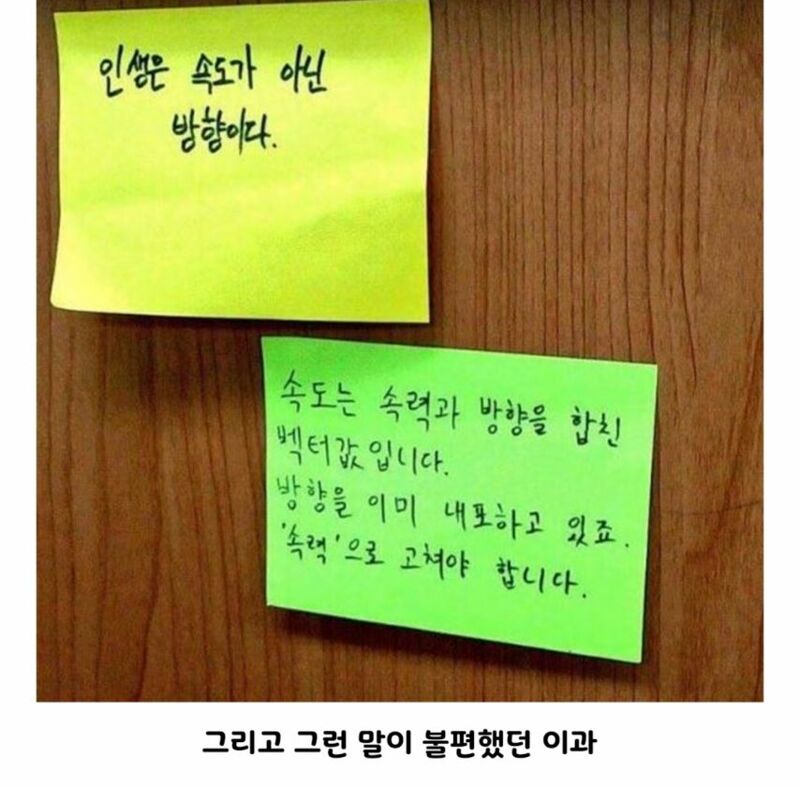 인생은 속도가 아닌
방향이다.
속도는 속력과 방향을 합친
벡터값입니다.
방향을 이미 내포하고 있죠.
'속력'으로 고쳐야 합니다.
그리고 그런 말이 불편했던 이과